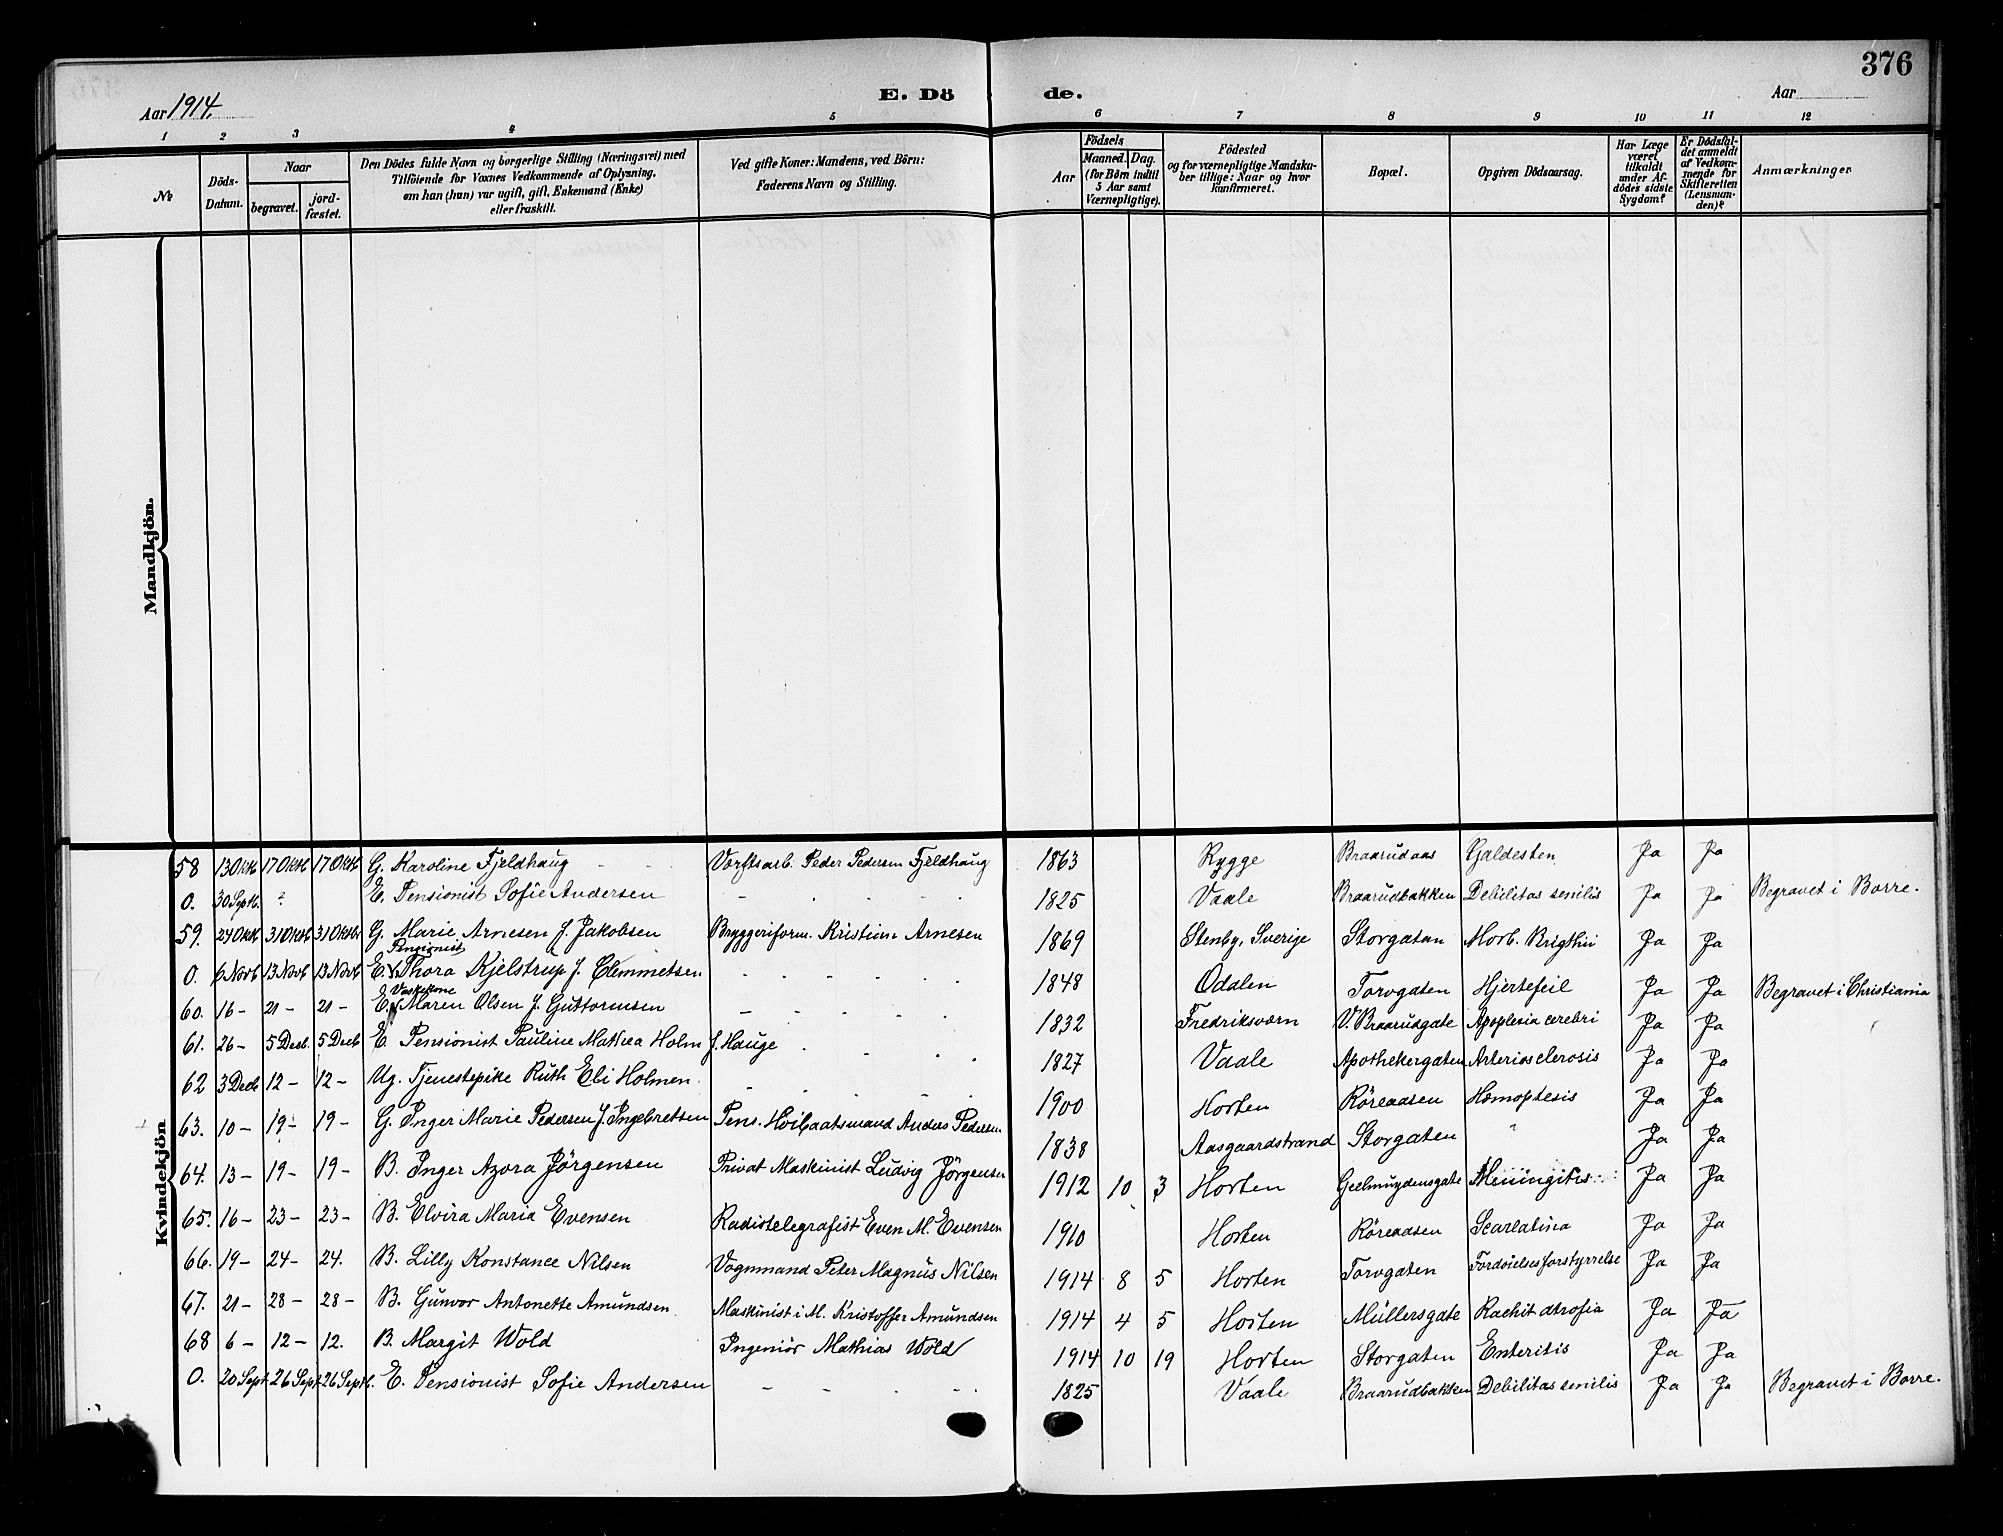 376
Aar 1914.
E. Dö de.
Aar
1 2 3 4 5 6 7 8 9 10 11 12
№
Döds-Datum.
Naar
begravet.
jord-fæstet.
Den Dödes fulde Navn og borgerlige Stilling (Næringsvei) med Tilföiende for Voxnes Vedkommende af Oplysning, om han (hun) var ugift, gift, Enkemand (Enke) eller fraskilt.
Ved gifte Koner: Mandens, ved Börn: Faderens Navn og Stilling.
Födsels
Aar
Maaned. Dag. (for Börn indtil 5 Aar samt Værnepligtige).
Födested og for værnepligtige Mandskaber tillige: Naar og hvor konfirmeret.
Bopæl.
Opgiven Dödsaarsag.
Har Læge været tilkaldt under Afdödes sidste Sygdom?
Er Dödsfaldet anmeldt af Vedkommende for Skifteretten (Lensmanden)?
Anmærkninger
Mandkjön.
Kvindekjön
58 13 Oktb 17 Oktb 17 Oktb G. Karoline Fjeldhaug Verftsarb. Peder Pedersen Fjeldhaug 1863 Rygge Braarudaas Galdesten Ja Ja
0. 30 Septb. ? E. Pensionist Sofie Andersen - 1825 Vaale Braarudbakken Debilitas senilis Ja Ja Begravet i Borre.
59. 24 Oktb 31 Oktb 31 Oktbr G. Marie Arnesen f. Jakobsen Bryggeriform. Kristian Arnesen 1869 Stenby, Sverige Storgatan Morb. Brigthii Ja Ja
0. 6 Novb 13 Novb 13 Novb E. Pensionist Thora Kjelstrup f. Clemmetsen - 1848 Odalen Torvgaten Hjertefeil Ja Ja Begravet i Christiania
60. 16 - 21 - 21 - E. Vaskekone Maren Olsen f. Guttormsen - 1832 Fredriksværn V. Braarudgate Apoplexia cerebri Ja Ja
61. 26 - 5 Decb. 5 Decb E. Pensionist Pauline Mathea Holm f. Hauge 1827 Vaale Apothekergaten Arteriosclerosis Ja Ja
62 3 Decb 12 - 12 - Ug. Tjenestepike Ruth Eli Holmen. - 1900 Horten Röreaasen Hæmoptesis Ja Ja
63. 10 - 19 - 19 - G. Inger Marie Pedersen f. Ingebretsen Pens. Höibaatsmand Anders Pedersen 1838 Aasgaardstrand Storgaten " Ja Ja
64. 13 - 19 - 19 - B. Inger Azora Jörgensen Privat Maskinist Ludvig Jörgensen 1912 10 3 Horten Geelmuydensgate Meningitis Ja Ja
65. 16 - 23 - 23 - B. Elvira Maria Evensen Radiotelegrafist Even M. Evensen 1910 Horten Röreaasen Scarlatina Ja Ja
66. 19 - 24 - 24. B. Lilly Konstance Nilsen Vognmand Peter Magnus Nilsen 1914 8 5 Horten Torvgaten Fordöielsesforstyrrelse Ja Ja
67. 21 - 28 - 28 - B. Gunvor Antonette Amundsen Maskinist i M. Kristoffer Amundsen 1914 4 5 Horten Müllersgate Rachit atrofia Ja Ja
68 6 - 12 - 12. B. Margit Wold Ingeniör Mathias Wold 1914 10 19 Horten Storgaten Enteritis Ja Ja
0. 20 Sept. 26 Sept. 26 Septb. E. Pensionist Sofie Andersen - 1825 Vaale Braarudbakken Debilitas senilis Ja Ja Begravet i Borre.